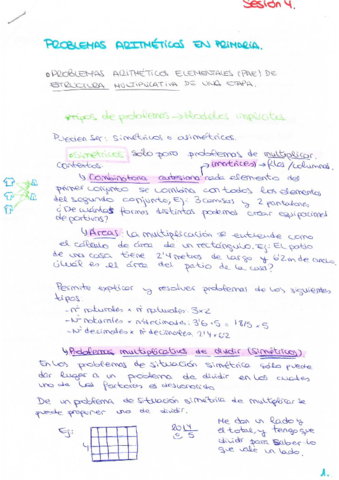 Sesión 4.
PROBLEMAS ARITMÉTICOS EN PRIMARIA.
PROBLEMAS ARITMÉTICOS ELEMENTALES (PAE) DE
ESTRUCTURA MULTIPLICATIVA DE UNA ETAPA.
Tipos de problemas → Modelos implícitos
Pueden ser: simétricos o asimétricos.
Simétricos sólo para problemas de multiplicar.
Contextos: (matrices) → filas/columnas
↳ Combinatoria cartesiana: cada elemento del
primer conjunto se combina con todos los elementos
del segundo conjunto. Ej: 3 camisas y 2 pantalones
¿De cuántas formas distintas podemos crear
↳ Áreas: La multiplicación se entiende como
el cálculo de área de un rectángulo. Ej: El patio
de una casa tiene 2'4 metros de largo y 6'2 m de
¿Cuál es el área del patio de la casa?
Permite explicar y resolver problemas de los siguientes
tipos
- nº naturales × nº naturales: 3×2
- Nº naturales × nº decimales: 3'6 × 5 = 18/5 × 5
- Nº decimales × nº decimales: 2'4 × 6'2
↳ Problemas multiplicativos de dividir (simétricos):
En los problemas de situación simétrica sólo puede
dar lugar a un problema de dividir en los cuales
uno de los factores es desconocido
De un problema de situación simétrica de multiplicar se
puede proponer uno de dividir.
Ej: 4 20 5 Me dan un lado y
el total, y tengo que
dividir para saber lo
que vale un lado.
1.